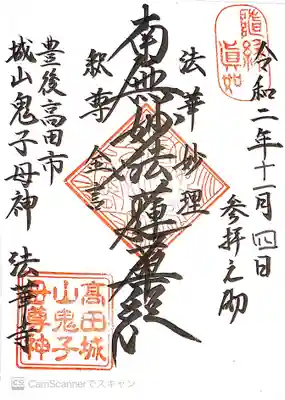 令和二年十一月四日
参拝之砌
随縁
真如
法華妙理
南無妙法蓮華経
釈尊金言
豊後高田市
城山鬼子母神
法華寺
高田城
山鬼子
母尊神
CS CamScannerでスキャン